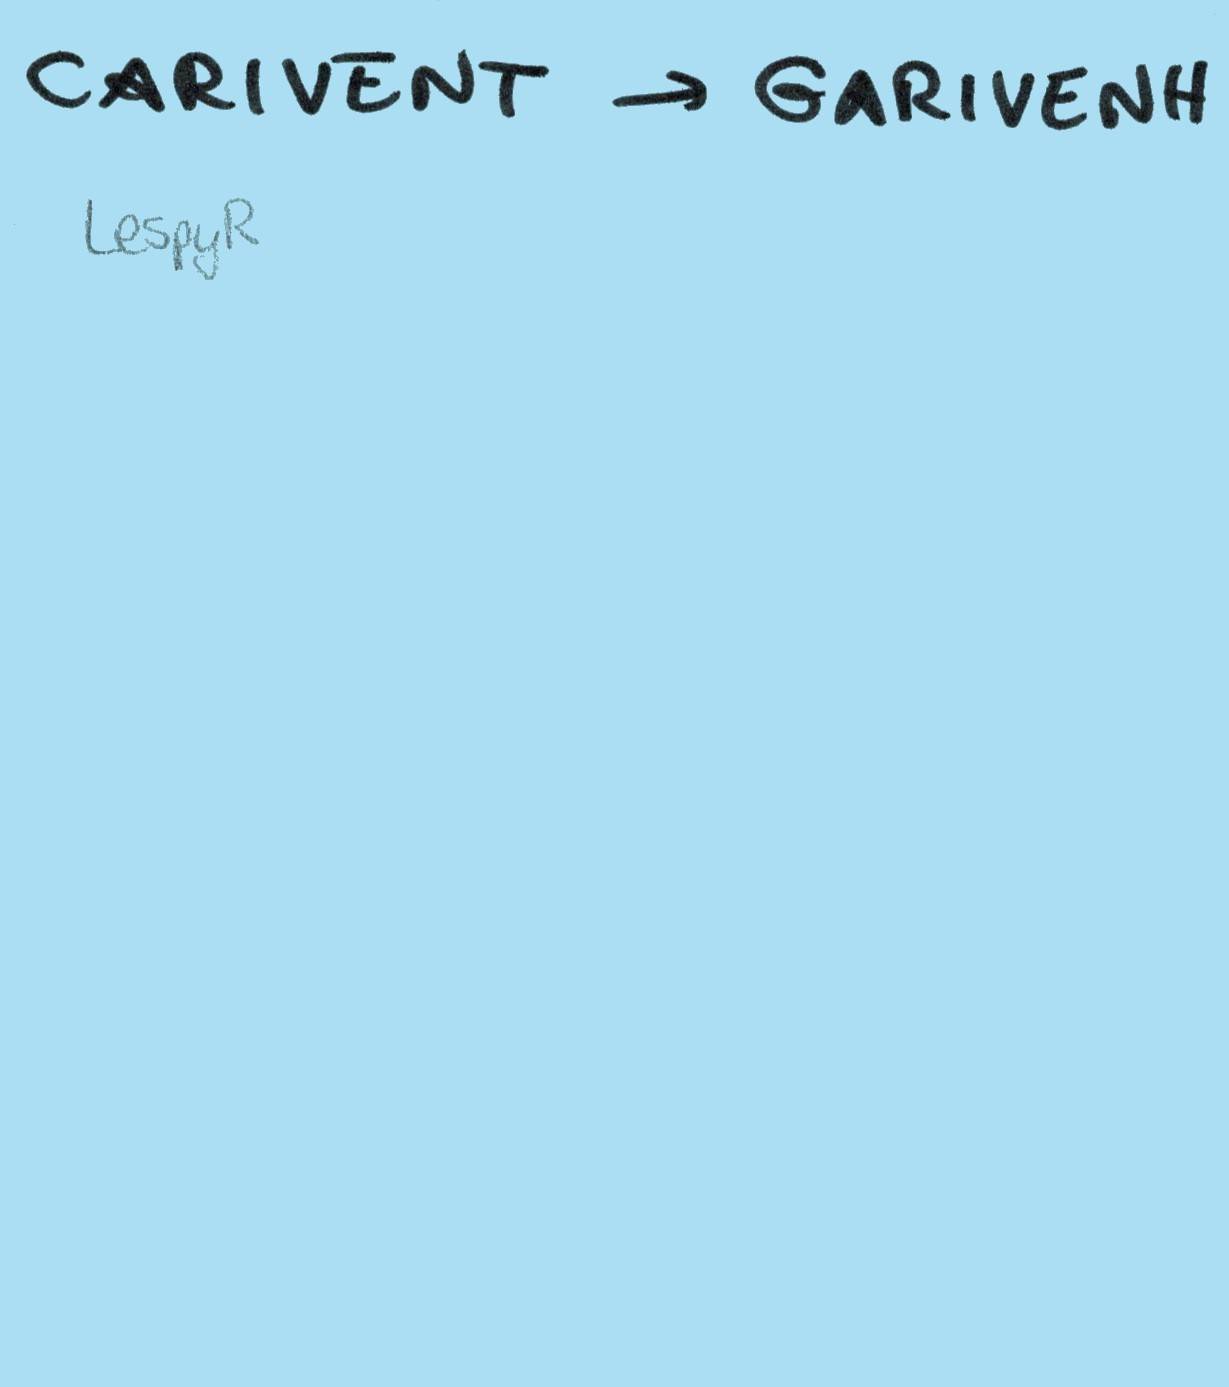 CARIVENT → GARIVENH
LespyR